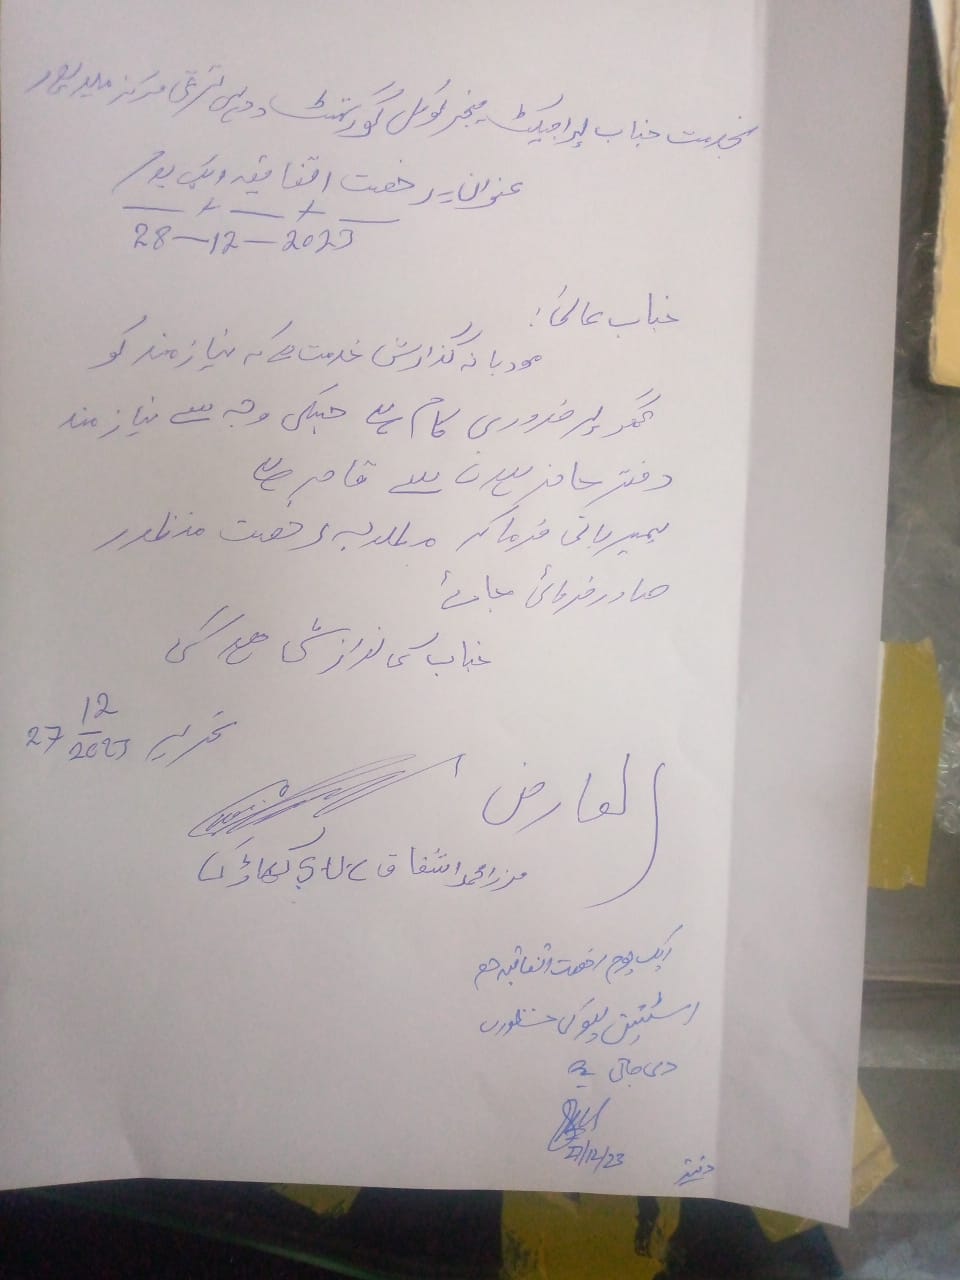 بخدمت جناب پراجیکٹ منیجر لوکل گورنمنٹ و دیہی ترقی مرکز میرپور
عنوان:- رخصت اتفاقیہ ایک یوم
28-12-2023
جناب عالی!
مودبانہ گذارش خدمت ہے کہ نیازمند کو
گھر پر ضروری کام ہے جسکی وجہ سے نیازمند
دفتر حاضر ہونے سے قاصر ہے
بمہربانی فرما کر مطلوبہ رخصت منظور
صادر فرمائی جاوئے
جناب کی نوازش ہو گی
تحریر 27 12/2023
العارض
مرزا محمد اشفاق S.U.C
ایک یوم رخصت اتفاقیہ مع
اسٹیشن لیو کی منظوری
دی جاتی ہے
27/12/23
دفتر